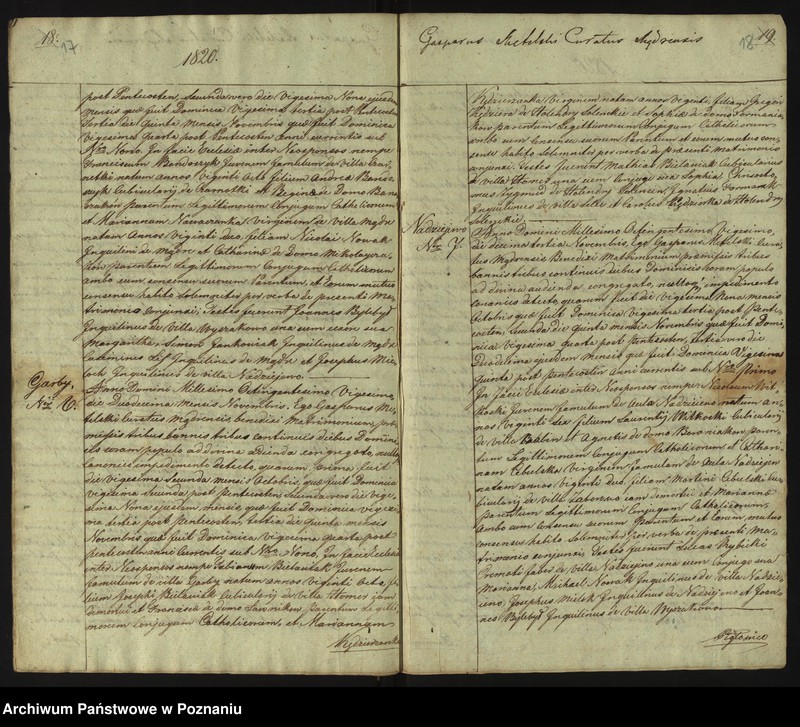 18.
17
1820.
post Pentecosten, Secunda vero die Vigesima Nona ejusdem
mensis quæ fuit Dominica Vigesima tertia post Pentecosten
Tertia die Quinta Mensis Novembris quæ fuit Dominica
Vigesima Quarta post Pentecosten Anni currentis sub
Nro Nono. In facie Ecclesiæ inter Neosponsos nempe
Franciscum Juvenem famulum de villa
natum annos Viginti Octo filium Andreæ
Cubicularij de et Reginæ de Domo
parentum Legittimorum Conjugum Catholicorum
et Mariannam Nowaczanka Virginem de villa Mądre
natam Annos Viginti duo, filiam Nicolai Nowak
Inquilini de Mądre et Catharinæ de Domo
parentum Legittimorum Conjugum Catholicorum
ambo cum consensu suorum Parentum, et Eorum mutuo
consensu habito Solemniter per verba de præsenti Ma-
trimonio conjunxi. Testes fuerunt Joannes
Inquilinus de villa Wyszakowo una cum uxore sua
Margaretha, Simon Jankowiak Inquilinus de Mądre
Inquilinus de Mądre et Josephus Mie-
lock Inquilinus de villa Nadziejewo.
Garby.
Nro 6.
Anno Domini Millesimo Octingentesimo Vigesimo
die Duodecima Mensis Novembris. Ego Gasparus Me-
telski Curatus Mądrensis benedixi Matrimonium, præ-
missis tribus bannis tribus continuis diebus Domini-
cis coram populo ad divina audienda congregato, nullo
canonico impedimento detecto, quarum prima fuit
die Vigesima Secunda mensis Octobris, quæ fuit Dominica
vigesima Secunda post Pentecosten Secunda vero die vige-
sima Nona ejusdem mensis quæ fuit Dominica vigesi-
ma tertia post Pentecosten, tertia die Quinta mensis
Novembris quæ fuit Dominica, vigesima quarta post
Pentecosten anni currentis sub Nro Nono. In facie Ecclesiæ
inter Neosponsos nempe Fabianum Bielawiak Juvenem
famulum de villa Garby natum annos viginti Octo, fi-
lium Josephi Bielawiak Cubicularij de villa jam
demortui et Franciscæ de domo parentum Legitti-
morum Conjugum Catholicorum, et Mariannam
Kędziszanka
Gasparus Metelski Curatus Mądrensis
18
19
Kędziszanka Virginem natam annos Viginti, filiam Gregorij
de Holendry Solenckie et Sophiæ de domo
parentum Legittimorum Conjugum Catholicorum
ambo cum consensu suorum Parentum et eorum mutuo con-
sensu habito Solemniter per verba de præsenti Matrimonio
conjunxi. Testes fuerunt Mathias Bielawiak Cubicularius
de villa una cum Conjuge sua Sophia,
Ignatius
Inquilinus de villa et Carolus de Holendry
Solenckie.
Nadziejewo
Nro 7
Anno Domini Millesimo Octingentesimo Vigesimo,
die decima tertia Novembris, Ego Gasparus Metelski Cura-
tus Mądrensis Benedixi Matrimonium præmissis tribus
bannis tribus continuis diebus Dominicis coram populo
ad divina audienda congregato, nulloq impedimento
canonico detecto, quarum fuit die vigesima Nona mensis
Octobris quæ fuit Dominica Vigesima tertia post Pente-
costen, Secunda die Quinta mensis Novembris quæ fuit Domi-
nica vigesima quarta post Pentecosten, tertia vero die
Duodecima ejusdem mensis quæ fuit Dominica Vigesima
Quinta post Pentecosten anni currentis sub Nro Primo
In facie Ecclesiæ inter Neosponsos nempe Nicolaum Wit-
kocki Juvenem famulum de Aula Nadziejewo natum an-
nos Viginti Sex filium Laurentij Witkocki Cubicularij
de villa et Agnetis de domo paren-
tum Legittimorum Conjugum Catholicorum et Cathari-
nam Cebulska Virginem famulam de Aula Nadziejewo
natam annos viginti duo, filiam Martini Cebulski Cu-
bicularij de villa jam demortui et Mariannæ
parentum Legittimorum Conjugum Catholicorum,
Ambo cum consensu suorum Parentum et Eorum mutuo
consensu habito Solemniter per verba de præsenti Ma-
trimonio conjunxi. Testes fuerunt Lucas Rybicki
faber de villa Nadziejewo una cum conjuge sua
Marianna, Michael Nowak Inquilinus de villa Nadzie-
jewo, Josephus Mielok Inquilinus de Nadziejewo et Joan-
nes Inquilinus de villa Wyszakowo
Archiwum Państwowe w Poznaniu